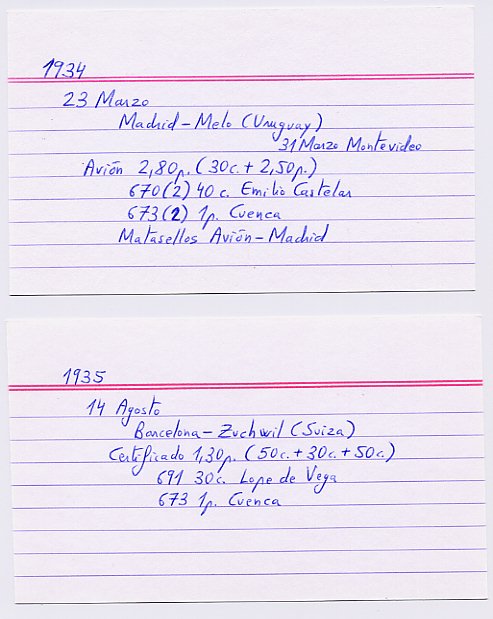 1934
23 Marzo
Madrid - Melo (Uruguay)
31 Marzo Montevideo
Avión 2,80p. (30c. + 2,50p.)
670(2) 40 c. Emilio Castelar
673(2) 1p. Cuenca
Matasellos Avión - Madrid
1935
14 Agosto
Barcelona - Zuchwil (Suiza)
Certificado 1,30p. (50c. + 30c. + 50c.)
691 30c. Lope de Vega
673 1p. Cuenca